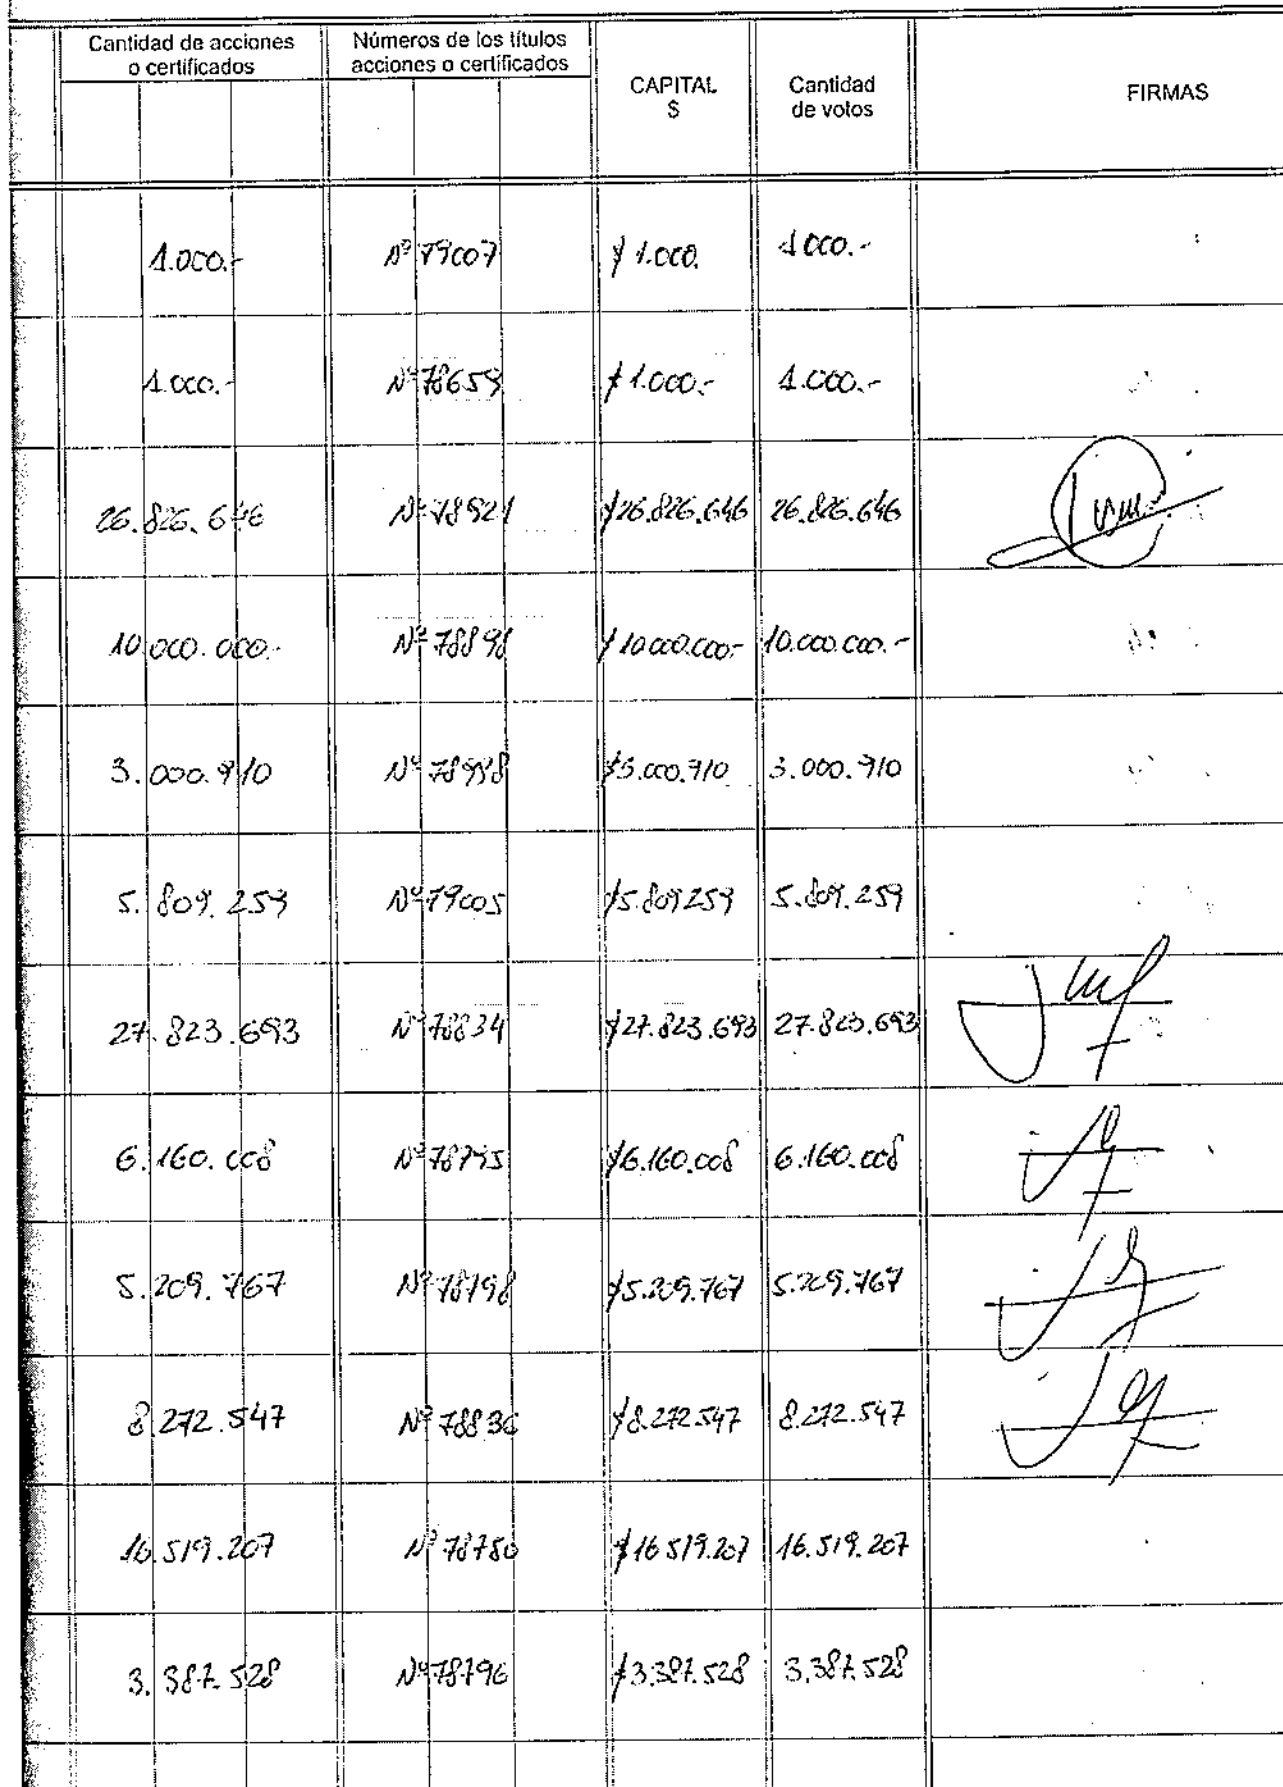 Cantidad de acciones
o certificados
Números de los títulos
acciones o certificados
CAPITAL
$
Cantidad
de votos
FIRMAS
1.000.- Nº 79007 $ 1.000. 1.000.-
1.000.- Nº 78659 $ 1.000.- 1.000.-
26.826.646 Nº 78921 $ 26.826.646 26.826.646
10.000.000.- Nº 78898 $ 10.000.000.- 10.000.000.-
3.000.910 $ 3.000.910 3.000.910
5.809.259 Nº 79005 $ 5.809.259 5.809.259
27.823.693 Nº 78834 $ 27.823.693 27.823.693
6.160.008 Nº 78795 $ 6.160.008 6.160.008
5.209.767 Nº 78798 $ 5.209.767 5.209.767
8.272.547 Nº 78836 $ 8.272.547 8.272.547
16.519.207 Nº 78780 $ 16.519.207 16.519.207
3.387.528 Nº 78796 $ 3.387.528 3.387.528